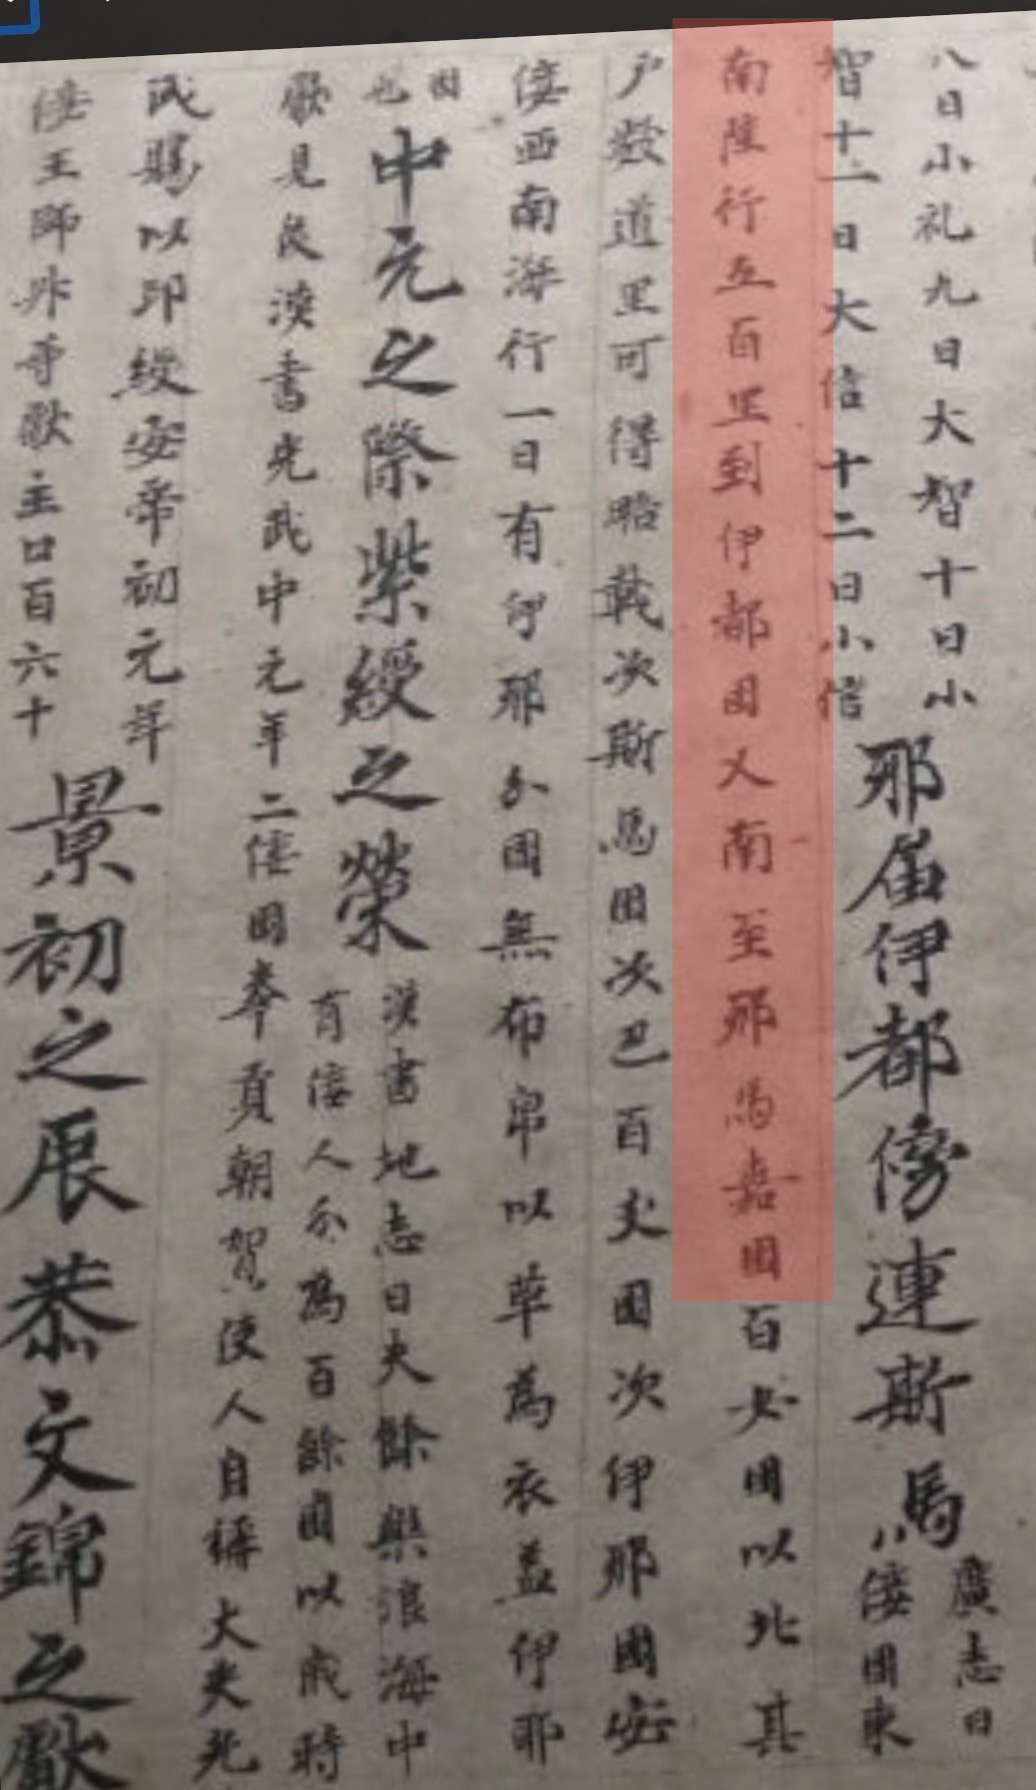 八日小礼九日大智十日小
智十一日大信十二日小信
邪届伊都傍連斯馬
廣志曰
倭国東
南陸行五百里到伊都国又南至邪馬嘉国百女国以北其
戸數道里可得略載次斯馬国次巴百支国次伊邪國安
倭西南海行一日有伊邪分国無布帛以革為衣盖伊耶
国
也
中元之際紫綬之榮
漢書地志曰夫餘樂浪海中
有倭人分為百餘國以歳時
献見後漢書光武中元年二倭国奉貢朝賀使人自稱大夫光
武賜以印綬安帝初元年
倭王師升等献生口百六十
景初之辰恭文錦之獻